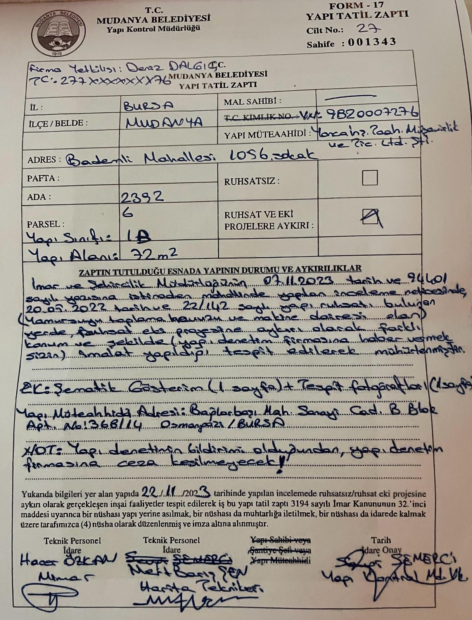 T.C.
MUDANYA BELEDİYESİ
Yapı Kontrol Müdürlüğü
FORM - 17
YAPI TATİL ZAPTI
Cilt No.: 27
Sahife : 001343
Firma Yetkilisi: Deniz DALGIÇ
TC: 277XXXXXXX76
T.C.
MUDANYA BELEDİYESİ
YAPI TATİL ZAPTI
İL : BURSA
MAL SAHİBİ :
T.C. KİMLİK NO. V.N: 9820007276
İLÇE / BELDE : MUDANYA
YAPI MÜTEAAHİDİ : İnş. Taah. Mühendislik
ve Tic. Ltd. Şti.
ADRES : Bademli Mahallesi 1056. sokak
PAFTA :
RUHSATSIZ :
ADA : 2392
PARSEL : 6
RUHSAT VE EKİ PROJELERE AYKIRI :
Yapı Sınıfı: 1B
Yapı Alanı: 72 m2
ZAPTIN TUTULDUĞU ESNADA YAPININ DURUMU VE AYKIRILIKLAR
İmar ve Şehircilik Müdürlüğünün 07.11.2023 tarih ve 94401
sayılı yazısına istinaden mahallinde yapılan inceleme neticesinde,
20.05.2022 tarih ve 22/142 sayılı yapı ruhsatı bulunan
(Yağmursuyu toplama havuzu ve makine dairesi olan)
yerde Ruhsat eki projesine aykırı olarak farklı
konum ve şekilde (yapı denetim firmasına haber vermek
sizin) imalat yapıldığı tespit edilerek mühürlenmiştir.
EK: Şematik Gösterim (1 sayfa) + Tespit fotoğrafları (1 sayfa)
Yapı Müteahhidi Adresi: Bağlarbaşı Mah. Sanayi Cad. B Blok
Apt. No: 368/14 Osmangazi / BURSA
NOT: Yapı denetimin bildirimi olduğundan, yapı denetim
firmasına ceza kesilmeyecek!
Yukarıda bilgileri yer alan yapıda 22/11/2023 tarihinde yapılan incelemede ruhsatsız/ruhsat eki projesine
aykırı olarak gerçekleşen inşai faaliyetler tespit edilerek iş bu yapı tatil zaptı 3194 sayılı İmar Kanununun 32.'inci
maddesi uyarınca bir nüshası yapı yerine asılmak, bir nüshası da muhtarlığa iletilmek, bir nüshası da idarede kalmak
üzere tarafımızca (4) nüsha olarak düzenlenmiş ve imza altına alınmıştır.
Teknik Personel İdare
Hacer ÖZKAN
Mimar
Teknik Personel İdare
ŞEN
Harita Teknikeri
Yapı Sahibi veya
Şantiye Şefi veya
Yapı Müteahhidi
Tarih
İdare Onay
SEMERCİ
Yapı Kontrol Md. V.